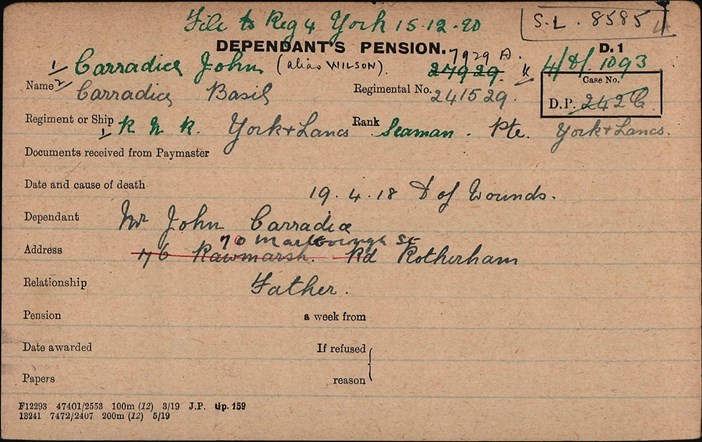 File to Reg 4 York 15.12.20
S.L. 8585
DEPENDANT'S PENSION. D.1
1/ Carradice John (alias WILSON). 7929 A. 4/8/1093
27929. K
Name 2/ Carradice Basil Regimental No. 241529. Case No.
D.P. 2426
Regiment or Ship 1/ R. N. R. York & Lancs Rank Seaman. Pte. York & Lancs.
Documents received from Paymaster
Date and cause of death 19.4.18 D of Wounds.
Dependant Mr John Carradice
70 Marlborough St
Address 76 Rawmarsh Rd Rotherham
Relationship Father.
Pension a week from
Date awarded If refused
Papers reason
F12293 47401/2553 100m (12) 3/19 J.P. Gp. 159
13241 7472/2407 200m (12) 5/19